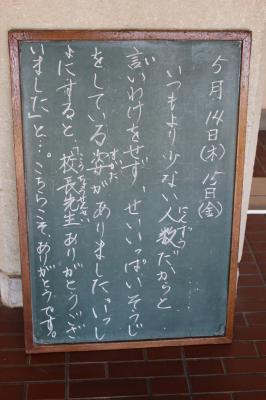 5月14日(木)15日(金)
いつもより少ない人数だからと
にんずう
言いわけをせず、せいいっぱいそうじ
をしている姿がありました。いっし
すがた
ょにすると、「校長先生ありがとうござ
こうちょうせんせい
いました」と…。こちらこそ、ありがとうです。